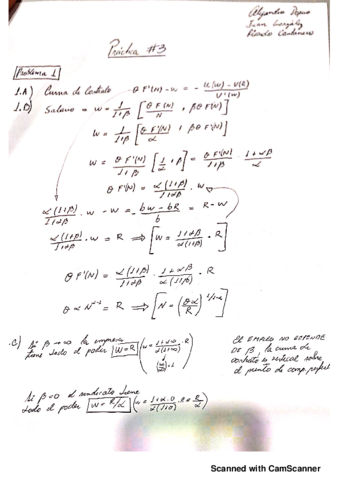 Alejandro
Juan González
Ricardo
Práctica #3
Problema 1
1.A) Curva de Contrato θF'(N) - w = - (U(w) - V(R)) / U'(w)
1.B) Salario = w = 1/(1+β) [θF(N)/N + βθF'(N)]
w = 1/(1+β) [θF'(N)/α + βθF'(N)]
w = θF'(N)/(1+β) [1/α + β] = θF'(N)/(1+β) · (1+αβ)/α
θF'(N) = α(1+β)/(1+αβ) · w
α(1+β)/(1+αβ) · w - w = - (bw - bR)/b = R - w
α(1+β)/(1+αβ) · w = R ⟹ [w = (1+αβ)/(α(1+β)) · R]
θF'(N) = α(1+β)/(1+αβ) · (1+αβ)/(α(1+β)) · R
θαN^(α-1) = R ⟹ [N = (θα/R)^(1/(1-α))]
C) Si β→∞ la empresa
tiene todo el poder W=R
EL EMPLEO NO DEPENDE
DE β, la curva de
contrato es vertical sobre
el punto de comp. perfect
Si β=0 el sindicato tiene
todo el poder W=R/α (w = (1+α·0)/(α(1+0)) · R = R/α)
Scanned with CamScanner